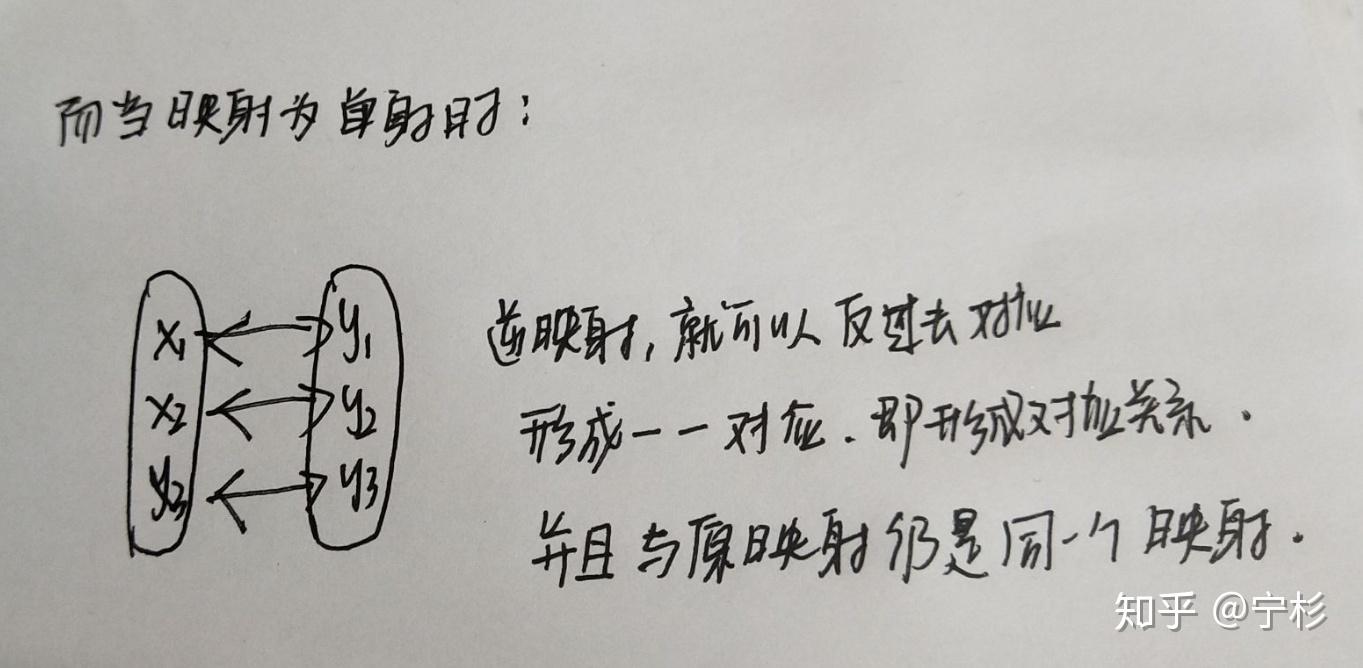 而当映射为单射时:
x₁ y₁
x₂ y₂
y₃ y₃
逆映射,就可以反过去对应
形成一一对应.即形成对应关系.
并且与原映射仍是同一个映射.
知乎 @宁杉